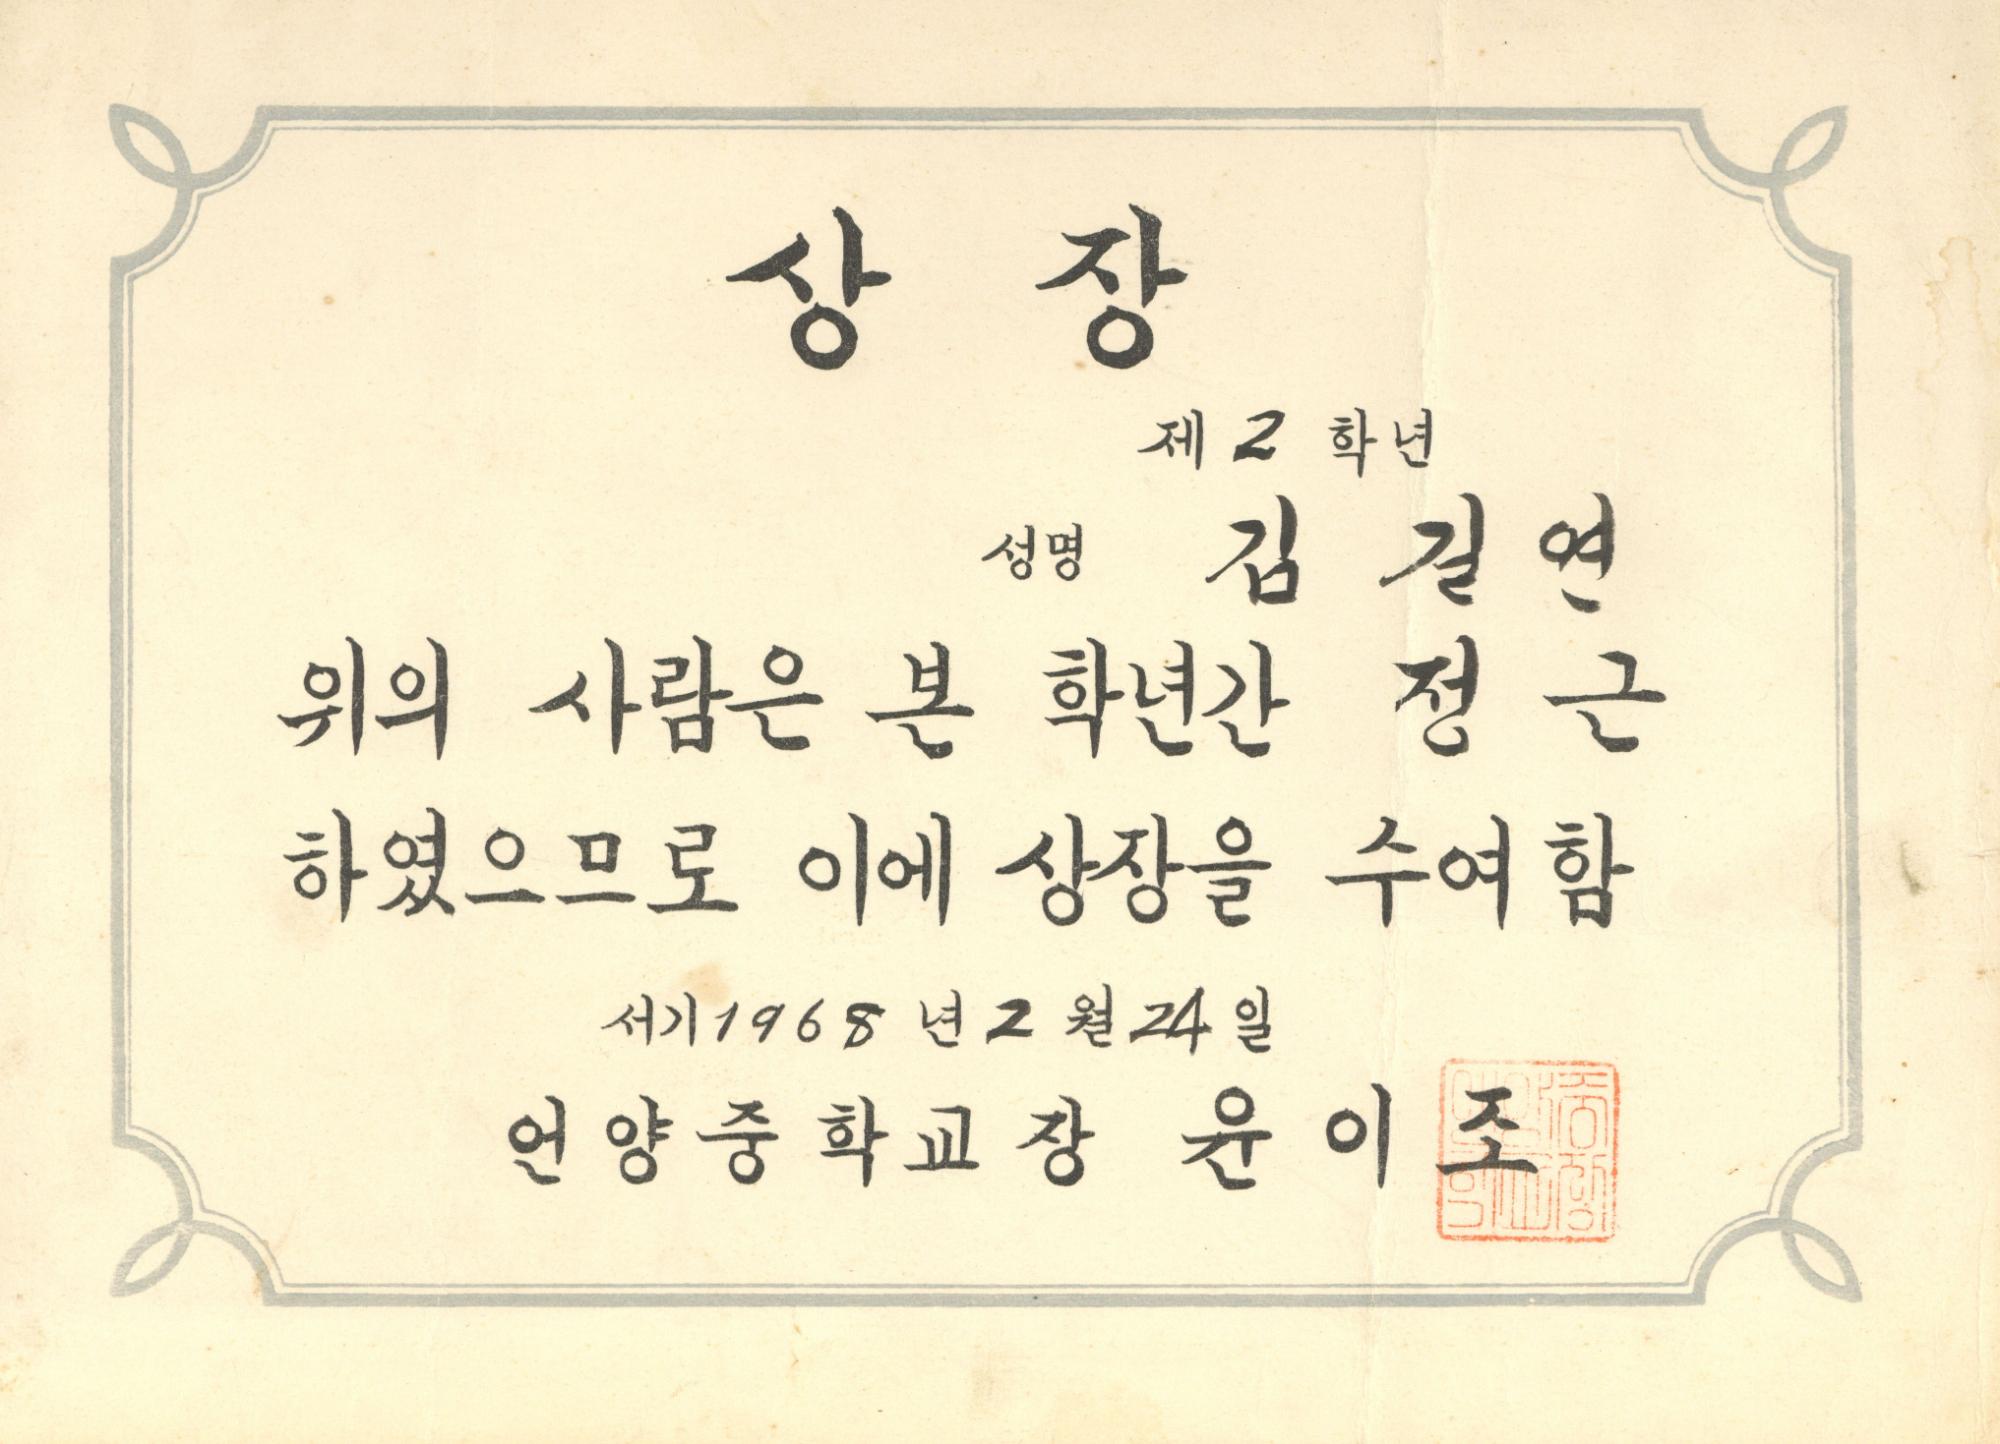 상 장
제 2 학년
성명 김 길 연
위의 사람은 본 학년간 정 근
하였으므로 이에 상장을 수여함
서기 1968 년 2 월 24 일
언양중학교장 윤이조